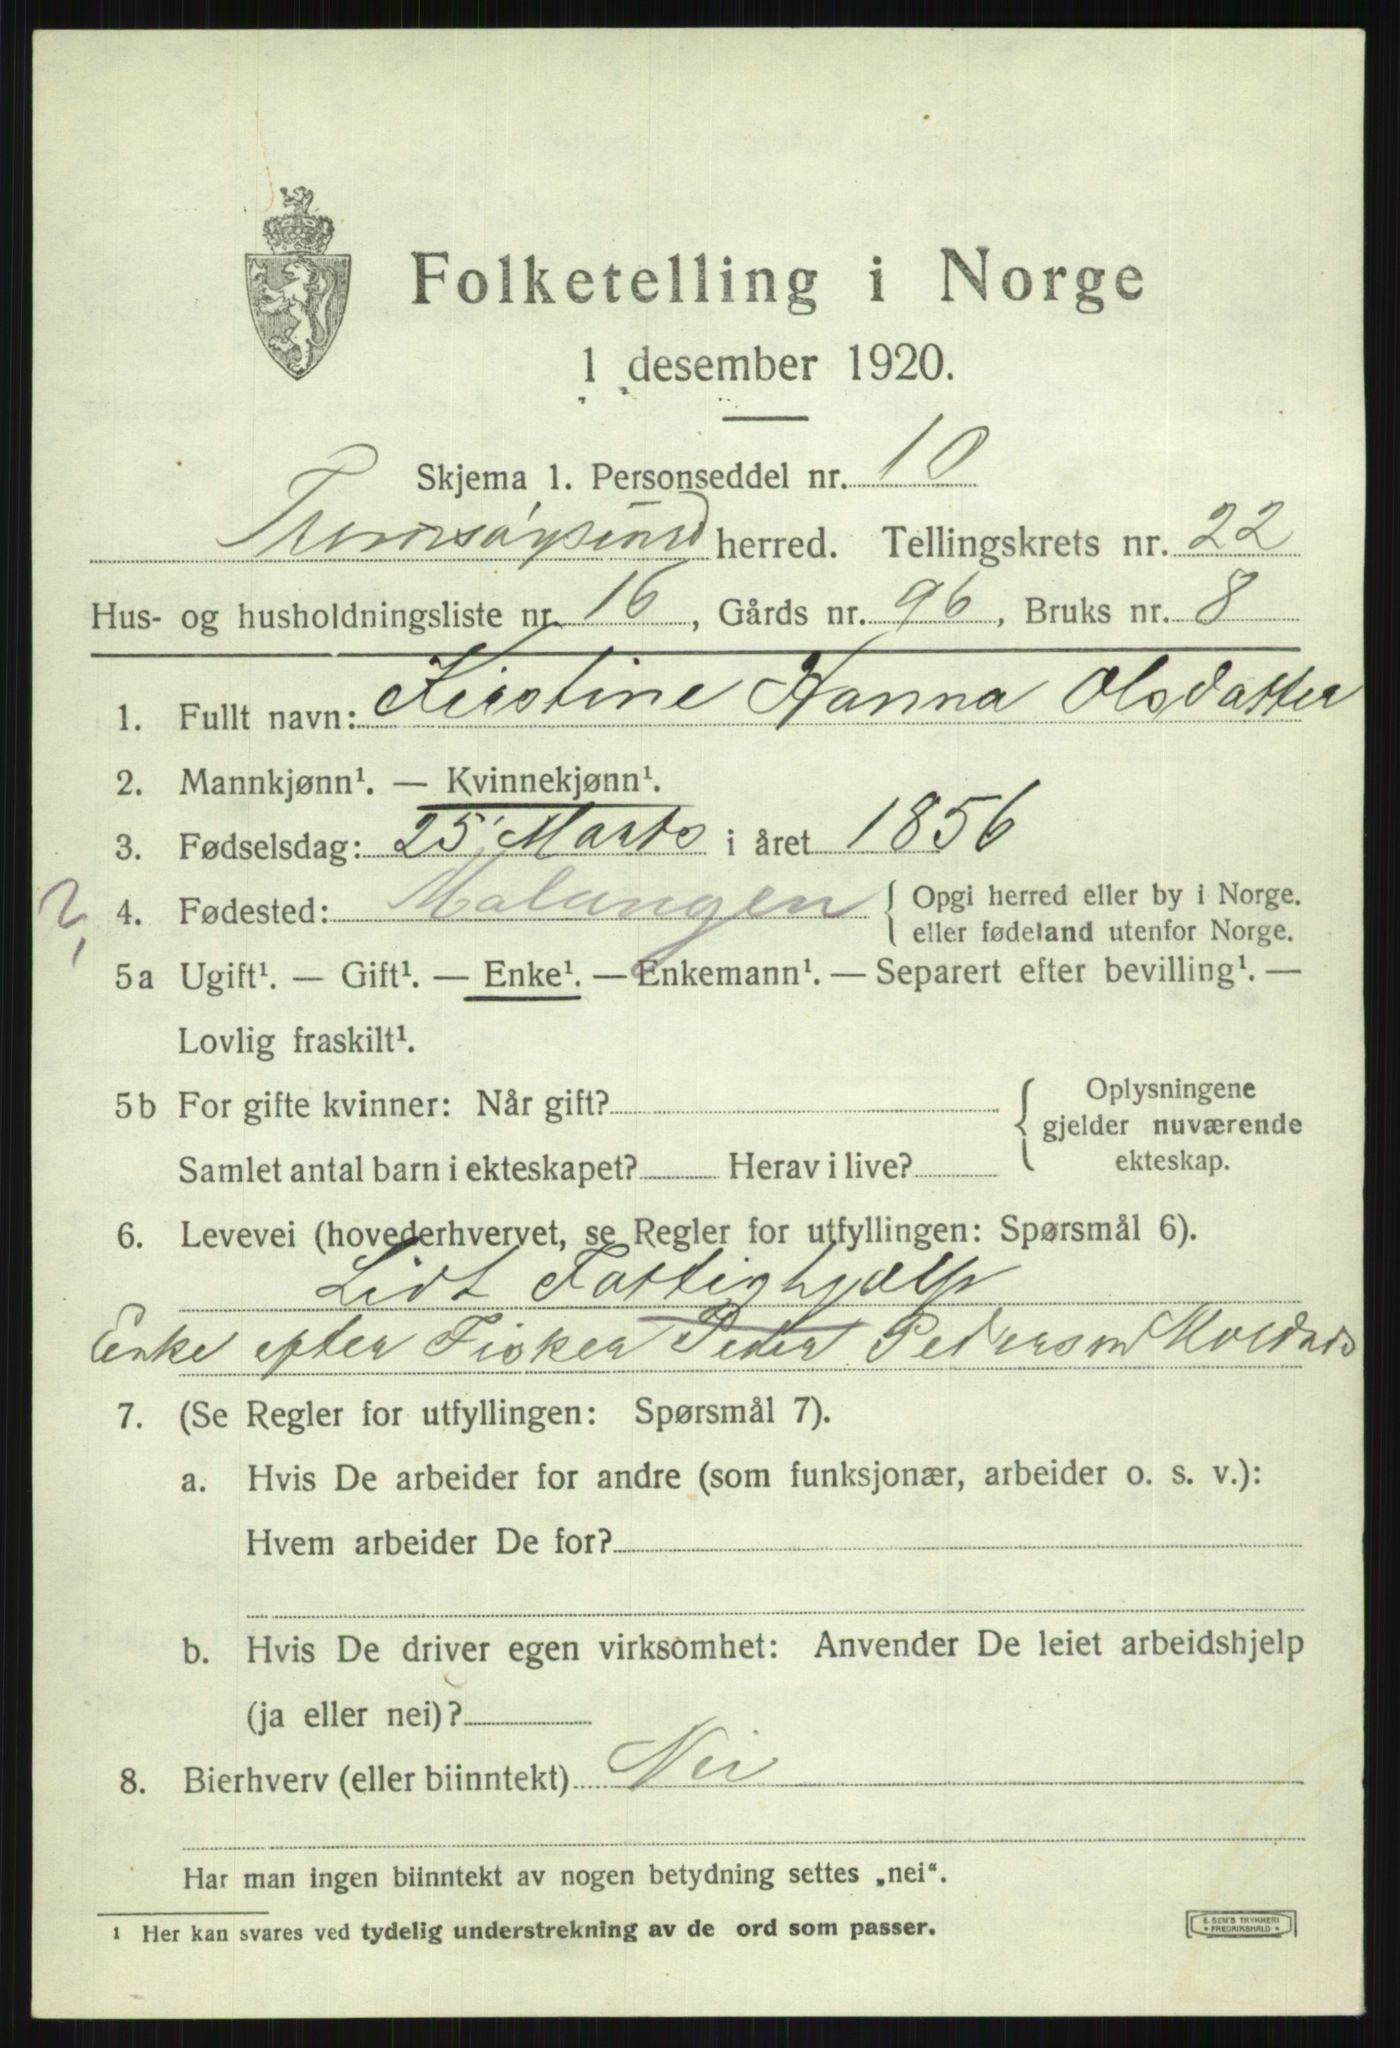 Folketelling i Norge
1 desember 1920.
Skjema 1. Personseddel nr. 10
Tromsøysund herred. Tellingskrets nr. 22
Hus- og husholdningsliste nr. 16, Gårds nr. 96, Bruks nr. 8
1. Fullt navn: Kirstine Hanna Olsdatter
2. Mannkjønn¹. — Kvinnekjønn¹.
3. Fødselsdag: 25 Marts i året 1856
4. Fødested: Malangen { Opgi herred eller by i Norge.
eller fødeland utenfor Norge.
?
5a Ugift¹. — Gift¹. — Enke¹. — Enkemann¹. — Separert efter bevilling¹. —
Lovlig fraskilt¹.
5b For gifte kvinner: Når gift? { Oplysningene
gjelder nuværende
Samlet antal barn i ekteskapet? Herav i live?
ekteskap.
6. Levevei (hovederhvervet, se Regler for utfyllingen: Spørsmål 6).
Lidt Fattighjælp
Enke efter Fisker Peder Pederson
7. (Se Regler for utfyllingen: Spørsmål 7).
a. Hvis De arbeider for andre (som funksjonær, arbeider o. s. v.):
Hvem arbeider De for?
b. Hvis De driver egen virksomhet: Anvender De leiet arbeidshjelp
(ja eller nei)?
8. Bierhverv (eller biinntekt) Nei
Har man ingen biinntekt av nogen betydning settes „nei“.
¹ Her kan svares ved tydelig understrekning av de ord som passer.
E. SEM'S TRYKKERI
* FREDRIKSHALD *